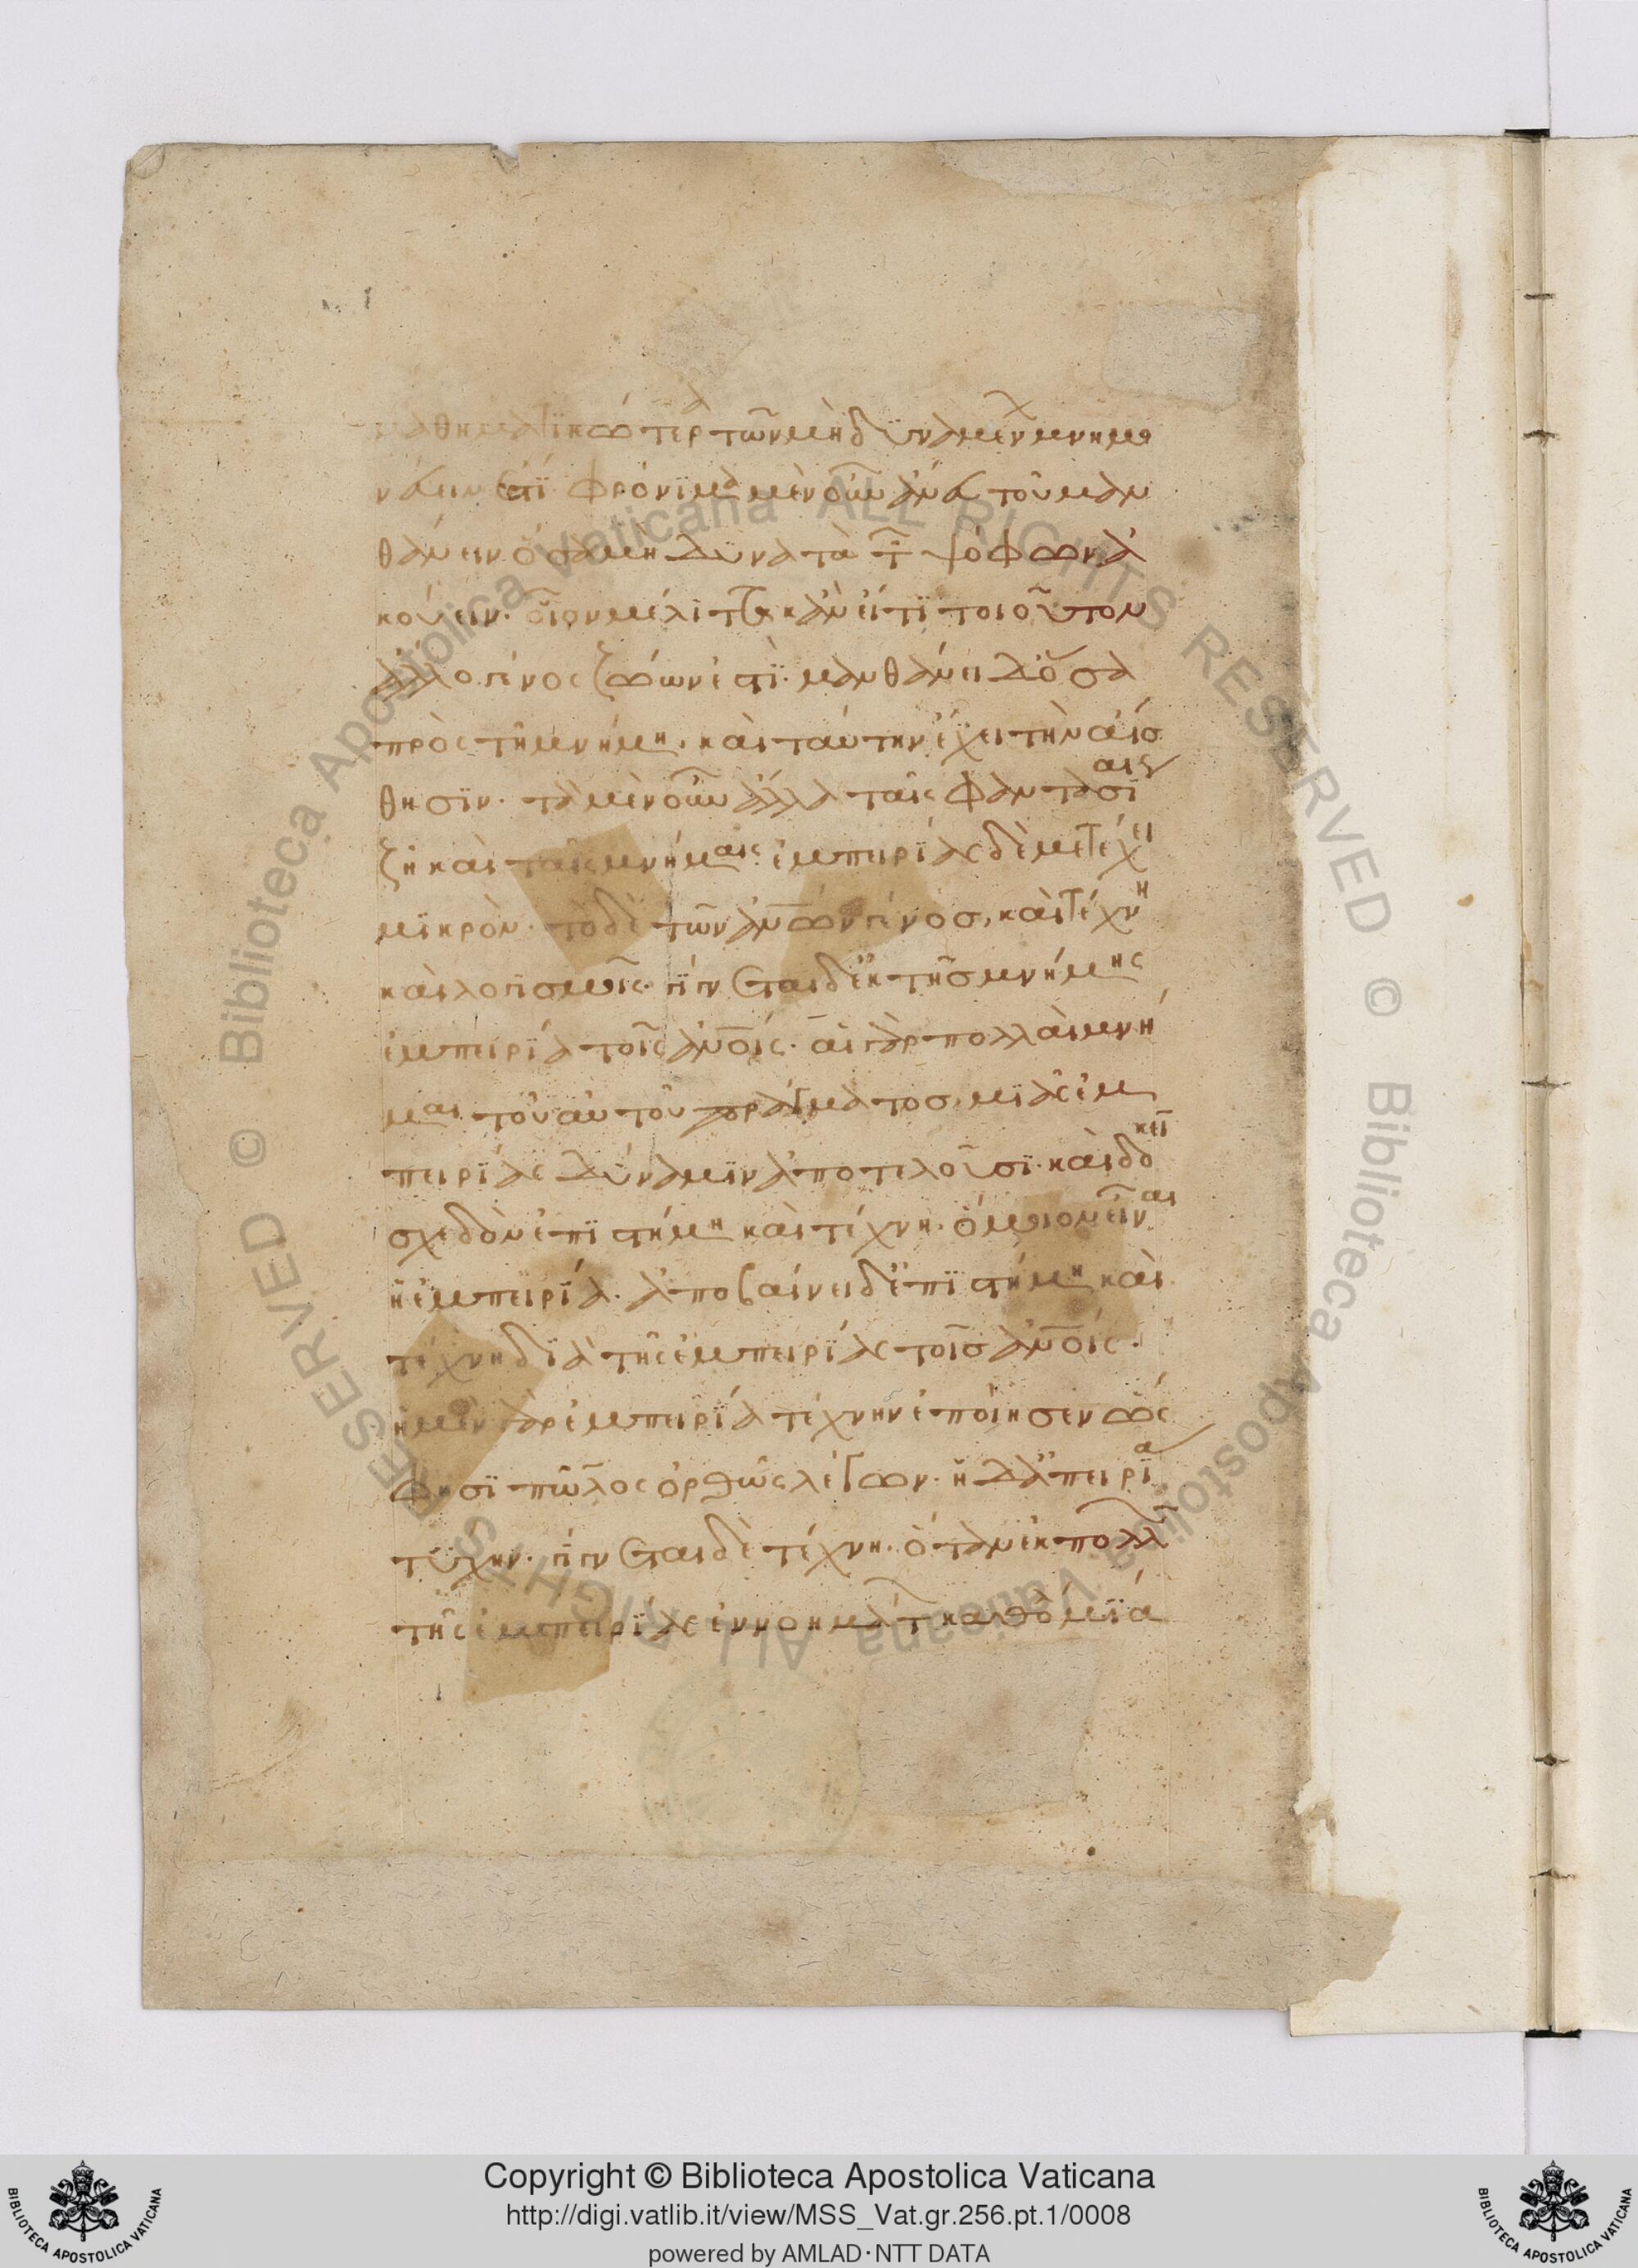 μαθηματικώτερα τῶν μὴ δυναμένων μνημο
νεύειν ἐστί. φρόνιμα μὲν οὖν ἄνευ τοῦ μαν
θάνειν ὅσα μὴ δύναται τῶν ψόφων ἀ
κούειν. οἷον μέλιττα κἂν εἴ τι τοιοῦτον
ἄλλο γένος ζώων ἐστί. μανθάνει δ' ὅσα
πρὸς τῆ μνήμη. καὶ ταύτην ἔχει τὴν αἴσ
θησιν. τὰ μὲν οὖν ἄλλα ταῖς φαντασίαις
ζῆ καὶ ταῖς μνήμαις. ἐμπειρίας δὲ μετέχει
μικρὸν. τὸ δὲ τῶν ἀνων γένος, καὶ τέχνη
καὶ λογισμοῖς. γίγνεται δ' ἐκ τῆς μνήμης
ἐμπειρία τοῖς ἀνοις. αἱ γὰρ πολλαὶ μνῆ
μαι τοῦ αὐτοῦ πράγματος, μιᾶς ἐμ
πειρίας δύναμιν ἀποτελοῦσι. καὶ δοκεῖ
σχεδὸν ἐπιστήμη καὶ τέχνη. ὅμοιον εἶναι
ἡ ἐμπειρία. ἀποβαίνει δ' ἐπιστήμη καὶ
τέχνη διὰ τῆς ἐμπειρίας τοῖς ἀνοις.
ἡ μὲν γὰρ ἐμπειρία τέχνην ἐποίησεν ὥς
φησι πῶλος ὀρθῶς λέγων. ἡ δ' ἀπειρία
τύχην. γίγνεται δὲ τέχνη. ὅταν ἐκ πολλῶν
τῆς ἐμπειρίας ἐννοημάτων καθόλου μία
Copyright © Biblioteca Apostolica Vaticana
http://digi.vatlib.it/view/MSS_Vat.gr.256.pt.1/0008
powered by AMLAD·NTT DATA
BIBLIOTECA APOSTOLICA VATICANA
BIBLIOTECA APOSTOLICA VATICANA
© Biblioteca Apostolica Vaticana ALL RIGHTS RESERVED © Biblioteca Apostolica Vaticana ALL RIGHTS RESERVED